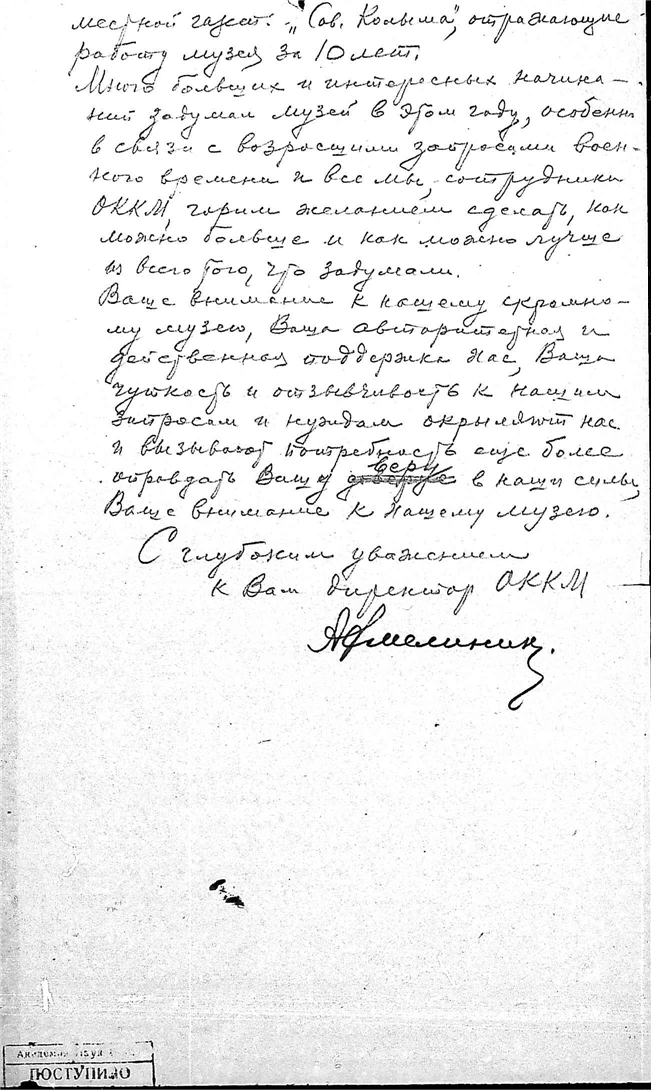 местной газет. „Сов. Колыма", отражающие
работу музея за 10 лет.
Много больших и интересных начина-
ний задумал музей в этом году, особенно
в связи с возросшими запросами воен-
ного времени и все мы, сотрудники
ОККМ, горим желанием сделать, как
можно больше и как можно лучше
из всего того, что задумали.
Ваше внимание к нашему скромно-
му музею, Ваша авторитетная и
действенная поддержка нас, Ваша
чуткость и отзывчивость к нашим
запросам и нуждам окрыляют нас
и вызывают потребность еще более
оправдать Вашу веру в наши силы,
Ваше внимание к нашему музею.
С глубоким уважением
к Вам директор ОККМ
Академия Наук
ПОСТУПИЛО